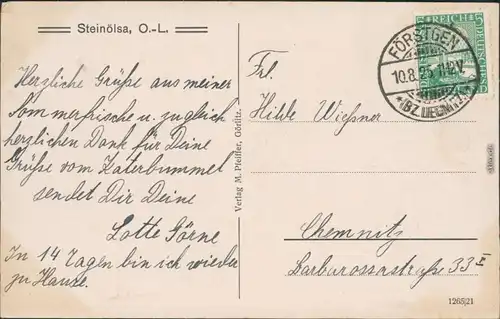 Steinölsa, O.-L.
Herzliche Grüße aus meiner
Sommerfrische u. zugleich
herzlichen Dank für Deine
Grüße vom Katerbummel
sendet Dir Deine
Lotte Görne
In 14 Tagen bin ich wieder
zu Hause.
Verlag M. Pfeiffer, Görlitz.
5 REICH 5
DEUTSCHES
FÖRSTGEN
10.8.25
Frl.
Hilde Wießner
Chemnitz
Barbarossastraße 33 II
1265|21